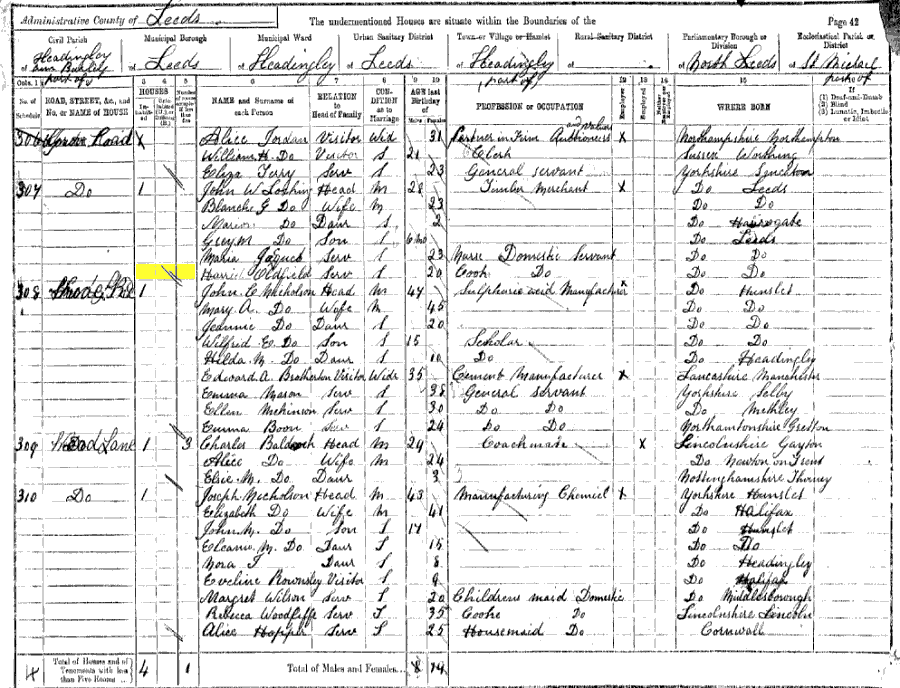 Administrative County of Leeds The undermentioned Houses are situate within the Boundaries of the Page 42
Civil Parish Municipal Borough Municipal Ward Urban Sanitary District Town or Village or Hamlet Rural Sanitary District Parliamentary Borough or Division Ecclesiastical Parish or District
Headingley part of of Leeds of Headingley of Leeds of Headingley (part of) of of North Leeds of St Michael part of
Cols. 1 2 3 4 5 6 7 8 9 10 11 12 13 14 15 16
No. of Schedule ROAD, STREET, &c., and No. or NAME of HOUSE HOUSES NAME and Surname of each Person RELATION to Head of Family CONDITION as to Marriage AGE last Birthday of Males Females PROFESSION or OCCUPATION Employer Employed WHERE BORN If (1) Deaf-and-Dumb (2) Blind (3) Lunatic, Imbecile or Idiot
306 Road X Alice Jordan Visitor Wid 31 Partner in Firm Auctioneers and Valuers X Northamptonshire Northampton
William H. Do Visitor S 21 Clerk Sussex Worthing
Eliza Terry Serv S 23 General servant Yorkshire
307 Do 1 John W Head M 28 Timber Merchant X Do Leeds
Blanche G Do Wife M 23 Do Do
Do Daur S 2 Do Harrogate
Guy M Do Son S 6 mo Do Leeds
Maria Serv S 23 Nurse Domestic Servant Do Do
Harriet Oldfield Serv S 20 Cook Do Do Do
308 1 John C. Nicholson Head M 47 Sulphuric acid Manufacturer X Do Hunslet
Mary A. Do Wife M 45 Do Do
Jeannie Do Daur S 20 Do Do
Wilfrid E. Do Son S 15 Scholar Do Do
Hilda M. Do Daur S 10 Do Do Headingley
Edward A. Brotherton Visitor Widr 35 Cement Manufacturer X Lancashire Manchester
Emma Mason Serv S 38 General servant Yorkshire Selby
Ellen Serv S 30 Do Do Do Methley
Emma Boon Serv S 24 Do Do Northamptonshire Gretton
309 Wood Lane 1 3 Charles Head M 29 Coachman X Lincolnshire Gayton
Alice Do Wife M 24 Do Newton on Trent
Elsie M. Do Daur 3 Nottinghamshire Thorney
310 Do 1 Joseph Nicholson Head M 43 Manufacturing Chemist X Yorkshire Hunslet
Elizabeth Do Wife M 41 Do Halifax
John M. Do Son S 17 Do Hunslet
M. Do Daur S 15 Do Do
Nora Daur S 8 Do Headingley
Eveline Visitor S 9 Do Halifax
Margret Wilson Serv S 20 Childrens maid Domestic Do Middlesborough
Rebecca Serv S 35 Cook Do Lincolnshire Lincoln
Alice Serv S 25 Housemaid Do Cornwall
4 Total of Houses and of Tenements with less than Five Rooms 4 1 Total of Males and Females... 8 19